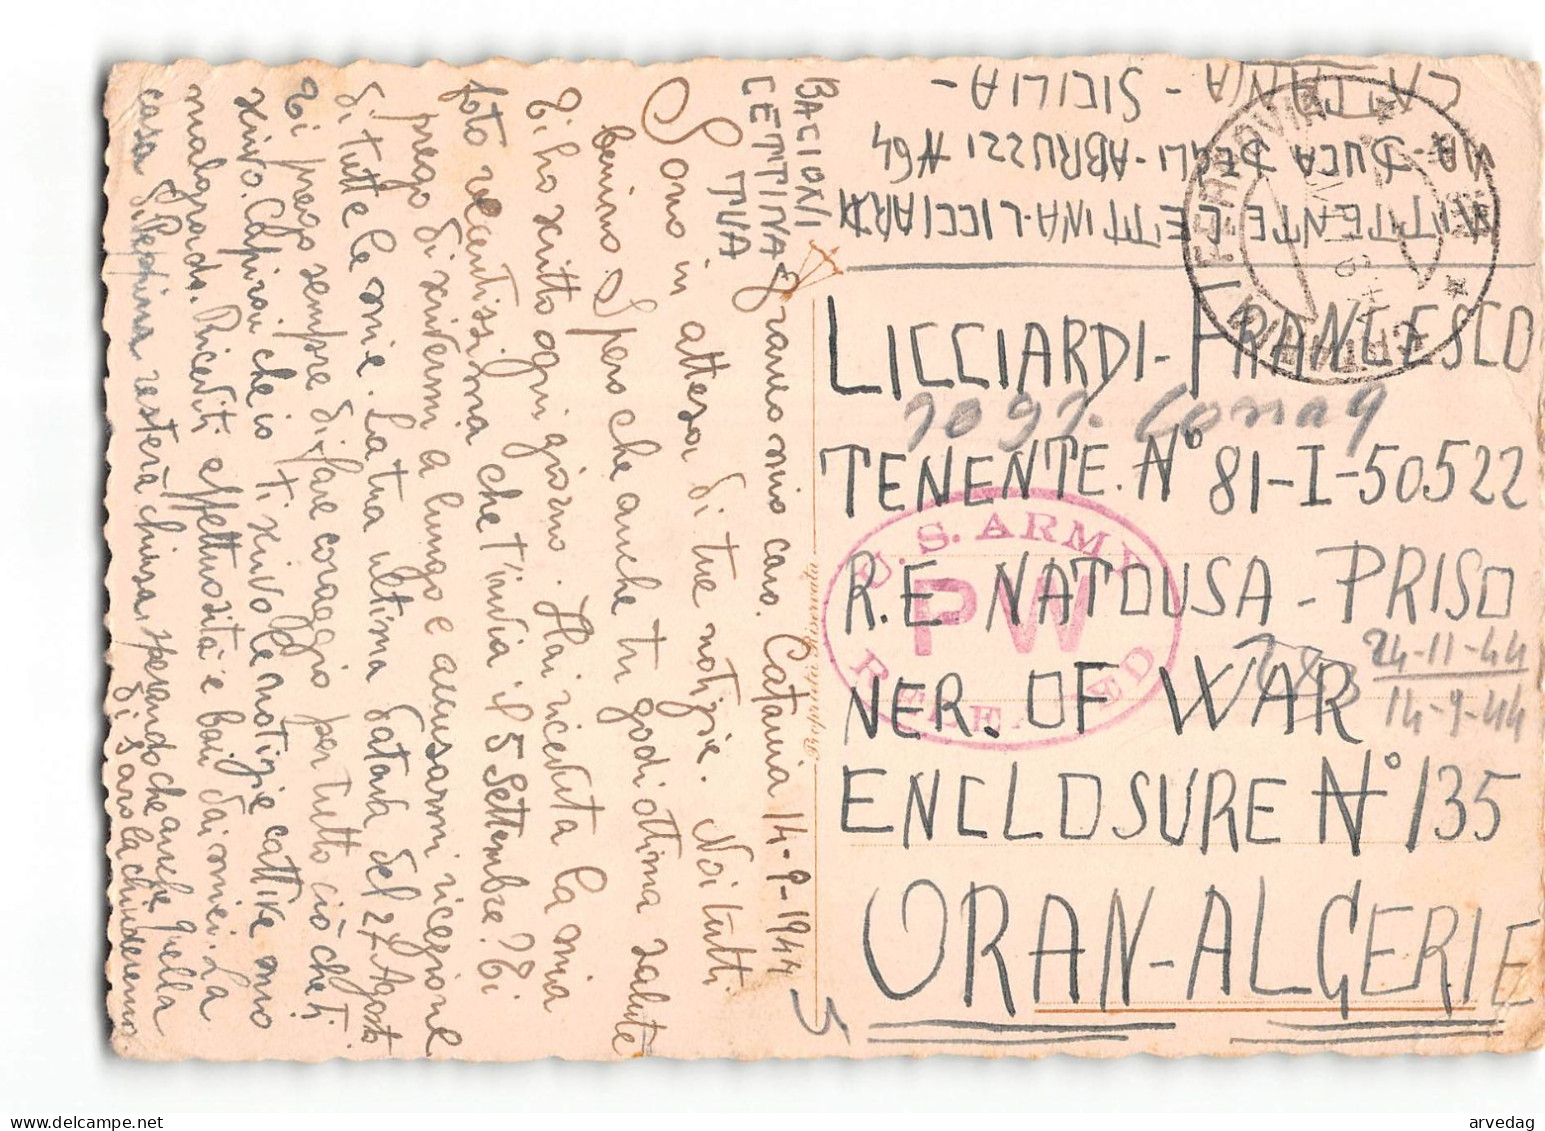 CATANIA - SICILIA -
VIA - DUCA DEGLI - ABRUZZI #64
MITTENTE CETTINA - LICCIARDI
LICCIARDI - FRANCESCO
TENENTE. N° 81-I-50522
R.E. NATOUSA - PRISO
NER. OF WAR
ENCLOSURE N° 135
ORAN - ALGERIE
24-11-44
14-9-44
U.S. ARMY
PW
Proprietà Riservata
FERROVIA
CATANIA
BACIONI
CETTINA
TUA
Franco mio caro. Catania 14-9-1944
Sono in attesa di tue notizie. Noi tutti
benino. Spero che anche tu godi ottima salute
Ti ho scritto ogni giorno. Hai ricevuta la mia
foto recentissima che t'inviai il 5 Settembre? Ti
prego di scrivermi a lungo e accusarmi ricezione
di tutte le mie. La tua ultima datava del 27 Agosto
Ti prego sempre di fare coraggio per tutto ciò che ti
scrivo. Capirai che io ti scrivo le notizie cattive mio
malgrado. Ricevi affettuosità e baci dai miei. La
casa di Peppina resterà chiusa, pensando che anche quella
di Saro la chiuderemo.